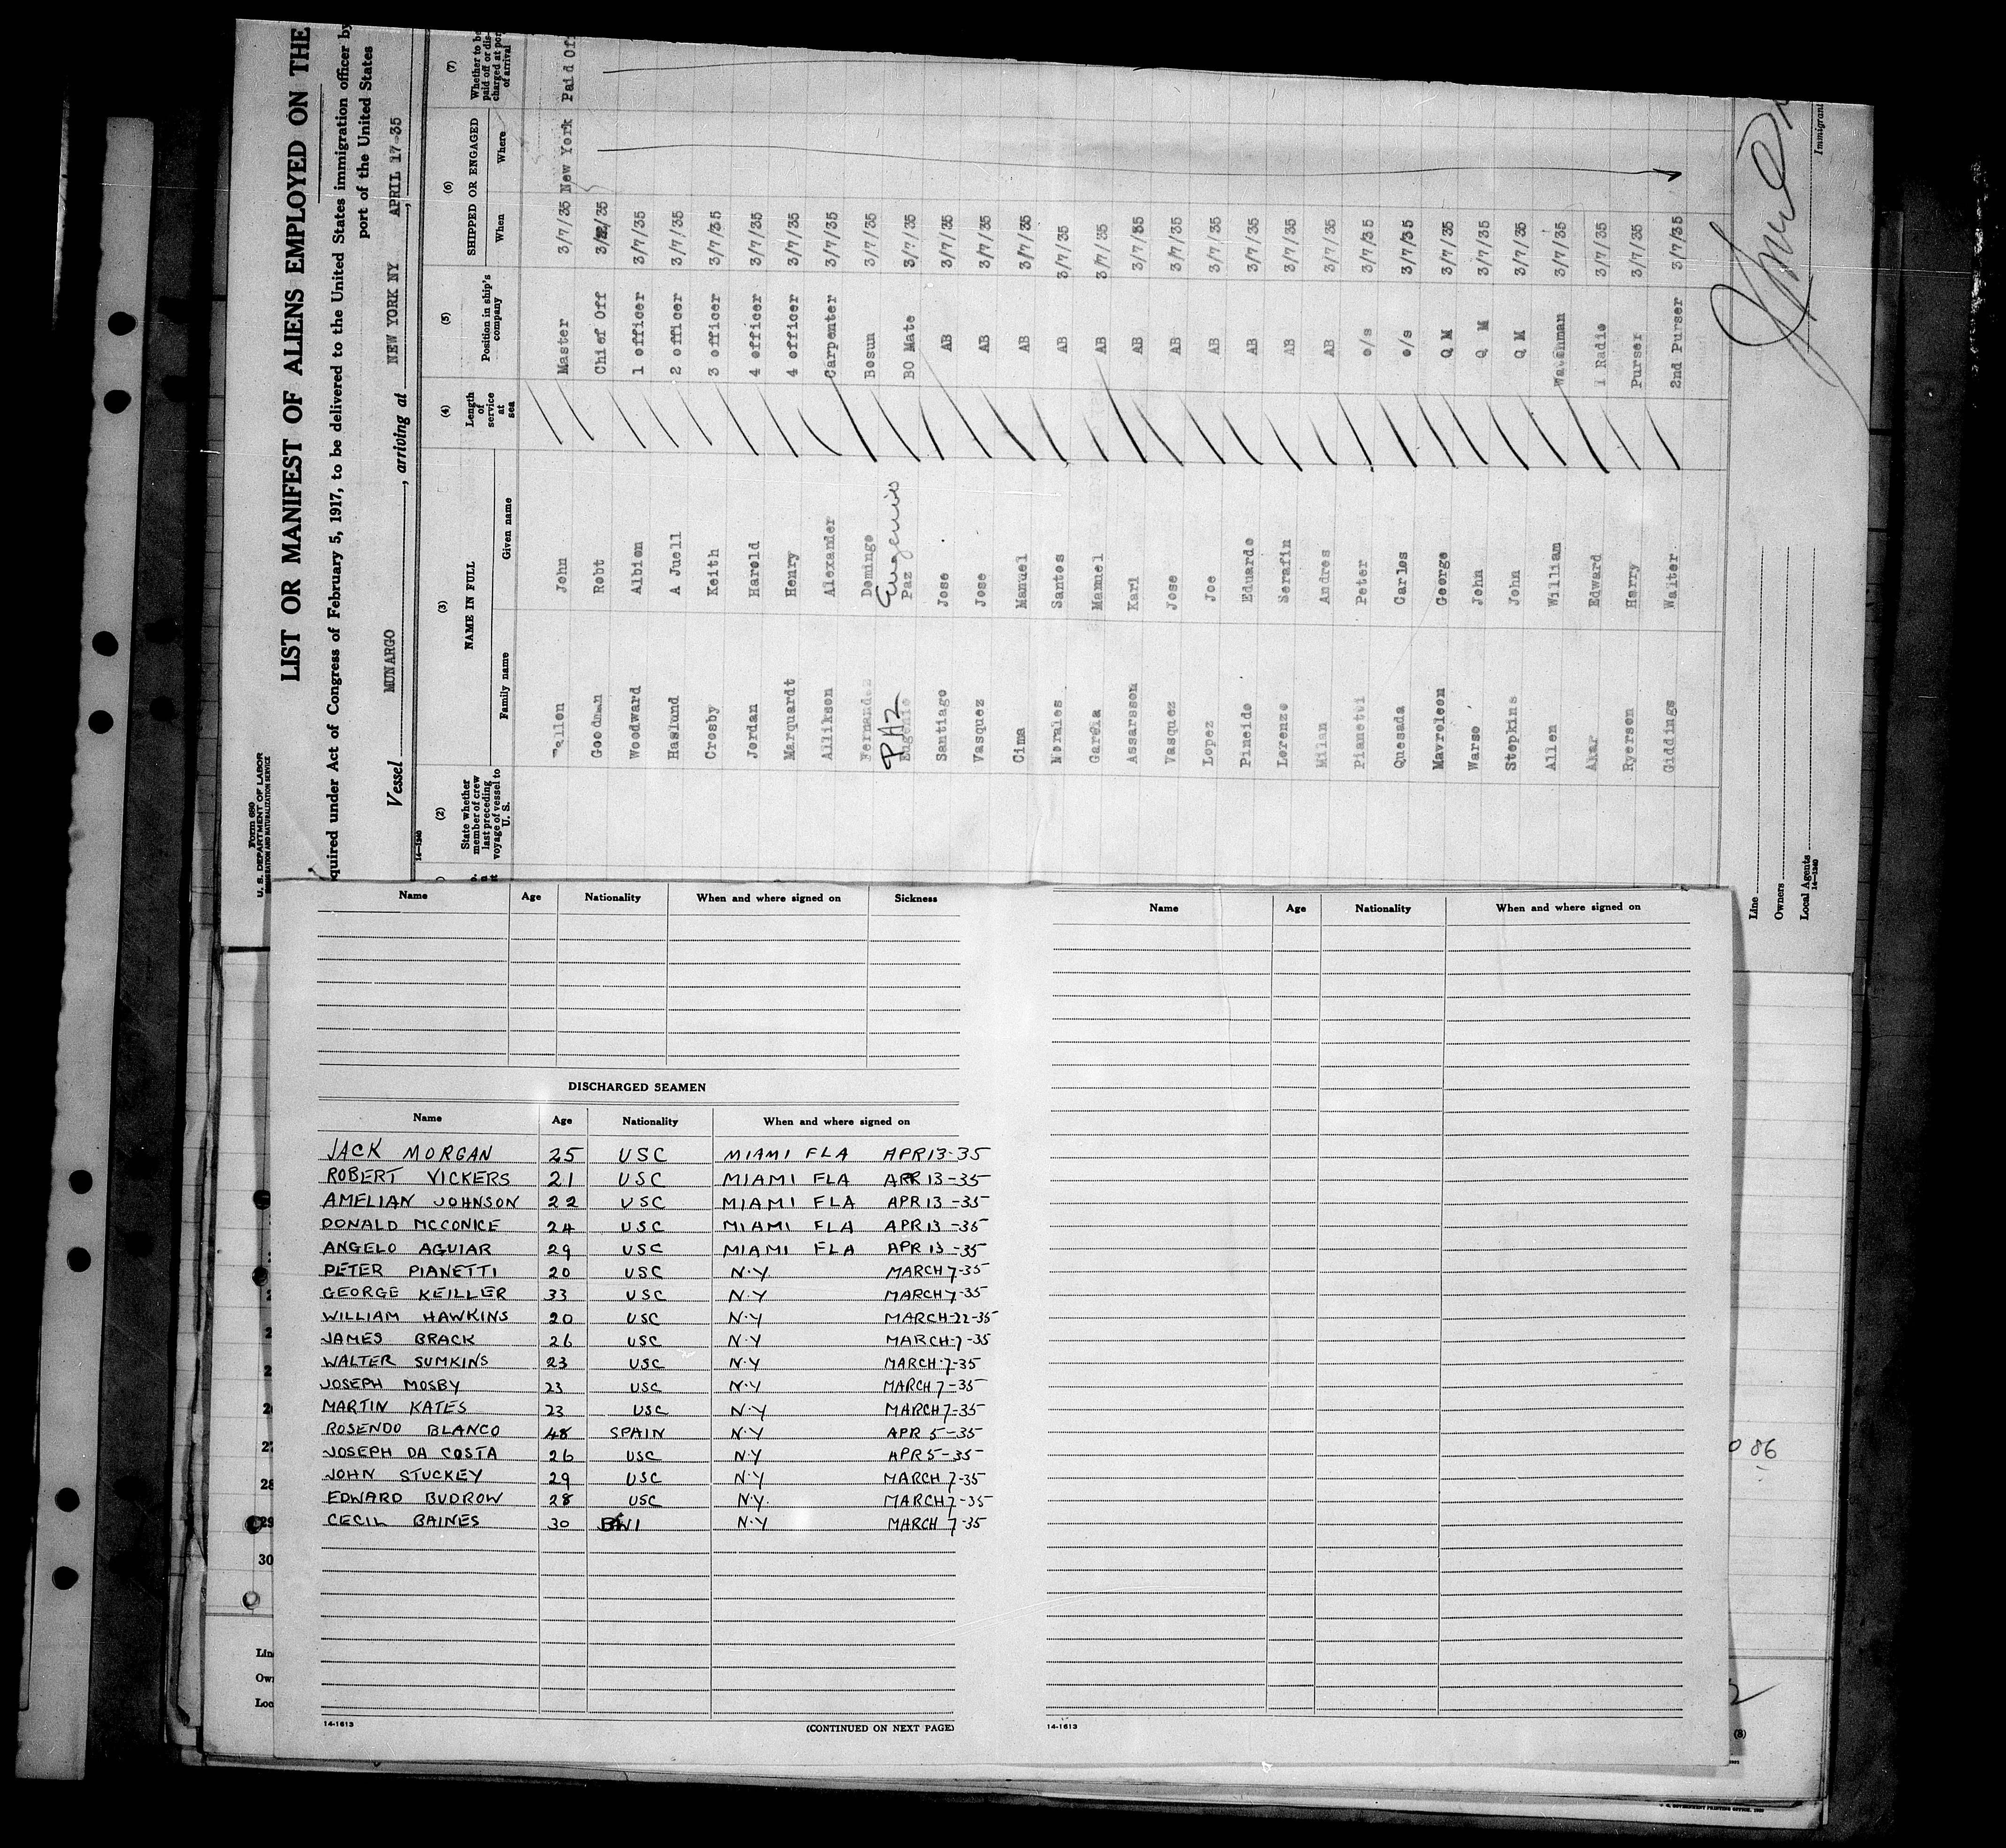 Form 680
U. S. DEPARTMENT OF LABOR
IMMIGRATION AND NATURALIZATION SERVICE
LIST OR MANIFEST OF ALIENS EMPLOYED ON THE
quired under Act of Congress of February 5, 1917, to be delivered to the United States immigration officer by
port of the United States
Vessel MUNARGO, arriving at NEW YORK NY, APRIL 17-35
14-1240
(2) (3) (4) (5) (6) (7)
State whether member of crew last preceding voyage of vessel to U. S.
NAME IN FULL
Family name Given name
Length of service at sea
Position in ship's company
SHIPPED OR ENGAGED
When Where
Whether to be paid off or discharged at port of arrival
John Master 3/7/35 New York Paid Off
Goodman Robt Chief Off
Woodward Albion 1 officer 3/7/35
Haslund A Juell 2 officer 3/7/35
Crosby Keith 3 officer 3/7/35
Jordan Harold 4 officer 3/7/35
Marquardt Henry 4 officer 3/7/35
Allikson Alexander Carpenter 3/7/35
Fernandez Domingo Bosun 3/7/35
Eugenio PAZ Paz Eugenio BO Mate 3/7/35
Santiago Jose AB 3/7/35
Vasquez Jose AB 3/7/35
Cima Manuel AB 3/7/35
Morales Santos AB 3/7/35
Garcia Manuel AB 3/7/35
Assarsson Karl AB 3/7/35
Vasquez Jose AB 3/7/35
Lopez Joe AB 3/7/35
Pineido Eduardo AB 3/7/35
Lorenzo Serafin AB 3/7/35
Milan Andres AB 3/7/35
Pianetti Peter o/s 3/7/35
Quesada Carlos o/s 3/7/35
Mavroleon George Q M 3/7/35
Warso John Q M 3/7/35
Stepkins John Q M 3/7/35
Allen William Watchman 3/7/35
Edward 1 Radio 3/7/35
Ryerson Harry Purser 3/7/35
Giddings Walter 2nd Purser 3/7/35
Line
Owners
Local Agents
14-1240
Immigrant
Name Age Nationality When and where signed on Sickness
DISCHARGED SEAMEN
Name Age Nationality When and where signed on
JACK MORGAN 25 USC MIAMI FLA APR 13-35
ROBERT VICKERS 21 USC MIAMI FLA APR 13-35
AMELIAN JOHNSON 22 USC MIAMI FLA APR 13-35
DONALD MCCONICE 24 USC MIAMI FLA APR 13-35
ANGELO AGUIAR 29 USC MIAMI FLA APR 13-35
PETER PIANETTI 20 USC N.Y. MARCH 7-35
GEORGE KEILLER 33 USC N.Y MARCH 7-35
WILLIAM HAWKINS 20 USC N.Y MARCH-22-35
JAMES BRACK 26 USC N.Y MARCH-7-35
WALTER SUMKINS 23 USC N.Y MARCH-7-35
JOSEPH MOSBY 23 USC N.Y MARCH 7-35
MARTIN KATES 23 USC N.Y MARCH 7-35
ROSENDO BLANCO 48 SPAIN N.Y APR 5-35
JOSEPH DA COSTA 26 USC N.Y APR 5-35
JOHN STUCKEY 29 USC N.Y MARCH 7-35
EDWARD BUDROW 28 USC N.Y. MARCH 7-35
CECIL BAINES 30 BWI N.Y MARCH 7-35
14-1613
(CONTINUED ON NEXT PAGE)
Name Age Nationality When and where signed on
14-1613
27
28
29
30
86
(8)